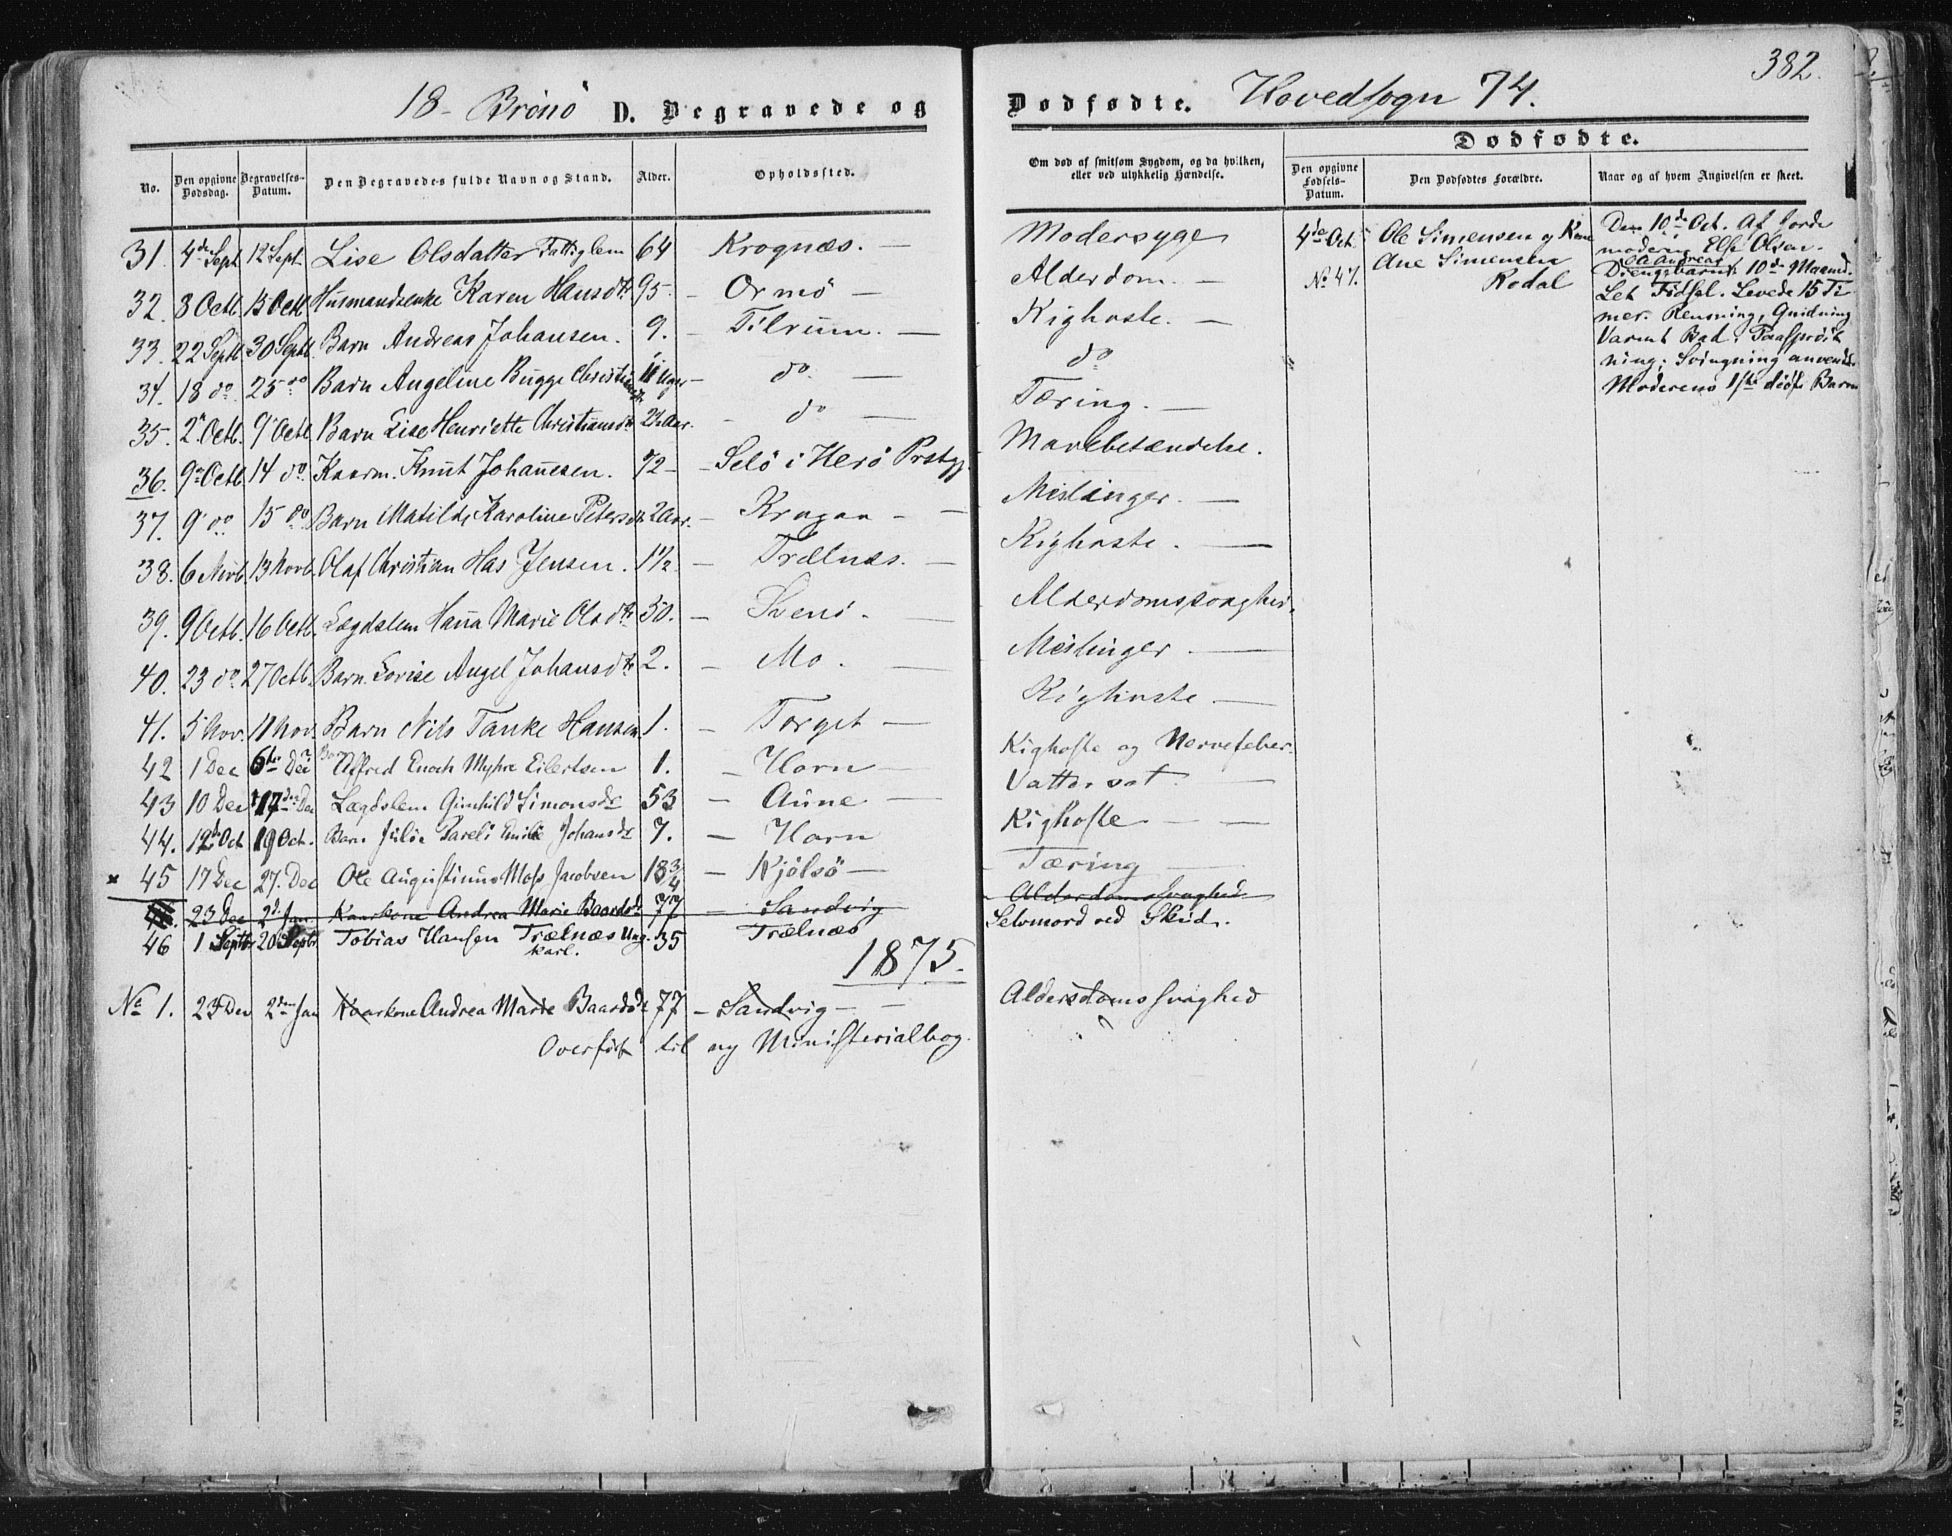 382.
18- Brönö D. Begravede og Dødfødte. Hovedsogn 74.
Dødfødte.
No. Den opgivne Dødsdag. Begravelses-Datum. Den Begravedes fulde Navn og Stand. Alder. Opholdssted. Om død af smitsom Sygdom, og da hvilken, eller ved ulykkelig Hændelse. Den opgivne Fødsels-Datum. Den Dødfødtes Forældre. Naar og af hvem Angivelsen er skeet.
31. 4de Sept 12 Sept. Lise Olsdatter Fattiglem 64 Krognæs. — Modersyge
32. 8 Octb 15 Octb Husmandsenke Karen Hansdtr 95 - Ormö — Alderdom. —
33. 22 Septb 30 Septb. Barn Andreas Johansen. 9. - Tilrum. — Kighoste. —
34. 18 do 25 do Barn Angeline Bugge 11 Uger - do. — do
35. 2 Octb. 9 Octb. Barn Lise Henriette Christiansdtr - do — Tæring. —
36. 9 Octb. 14 do. Kaarm. Knut Johannesen. 72 - - Selö i Herö Prstgj. Mavebetændelse.
37. 9 do 15 do Barn Matilde Karoline Petersdtr 2 Aar. - — Meslinger. —
38. 6 Novb. 13 Novb. Olaf Christian Has Jensen. 1½ - Trælnæs. — Kighoste. —
39. 9 Octb. 16 Octb. Lægdslem Hanna Marie Olsdtr 50. - — Alderdomssvaghed.
40. 23 do. 27 Octb. Barn Lovise Angel Johansdtr 2. - Mo. — Meslinger —
41. 5 Nov. 11 Nov. Barn Nils Tanke Hansen 1. - Torget — Kighoste —
42 1 Dec 6te Dec Barn Alfred Enoch Myhre Eilertsen 1. - Horn — Kighoste og Nervefeber.
43 10 Dec 17de Dec Lægdslem Gunhild Simonsdr 53 - Aune — Vattersot. —
44. 12de Oct 19 Oct. Barn Emilie Johansdr 7. - Horn Kighoste — —
x 45 17 Dec 27. Dec Ole Augustinus Moss Jacobsen 18 3/4 - Njölsö — Tæring —
46. 23 Dec 2d Jan Kaarkone Andrea Marie Baardsdr 77 - Sandvig - Alderdomssvaghed
46 1 Septbr 20 Septbr. Tobias Hansen Trælnæs Ungkarl. 35 Trælnæs Selvmord ved Skud.
1875.
No 1. 23 Dec 2den Jan Kaarkone Andrea Marie Baardsdr 77 - Sandvig — Aldersdomssvaghed
Overført til ny Ministerialbog.
4de Oct. Ole Simensen og Kone
Ane Simensen
No 47. Rodal
Den 10de Oct. Af Jorde
moderen Else Olsen.
Ole Andreas
Drengebarn. 10de Maaned.
Let Födsel. Levede 15 Ti
mer. Rensning, Gnidning
Varmt Bad, Paasprøit
ning; Svingning anvendt.
Moderens 1ste Barn